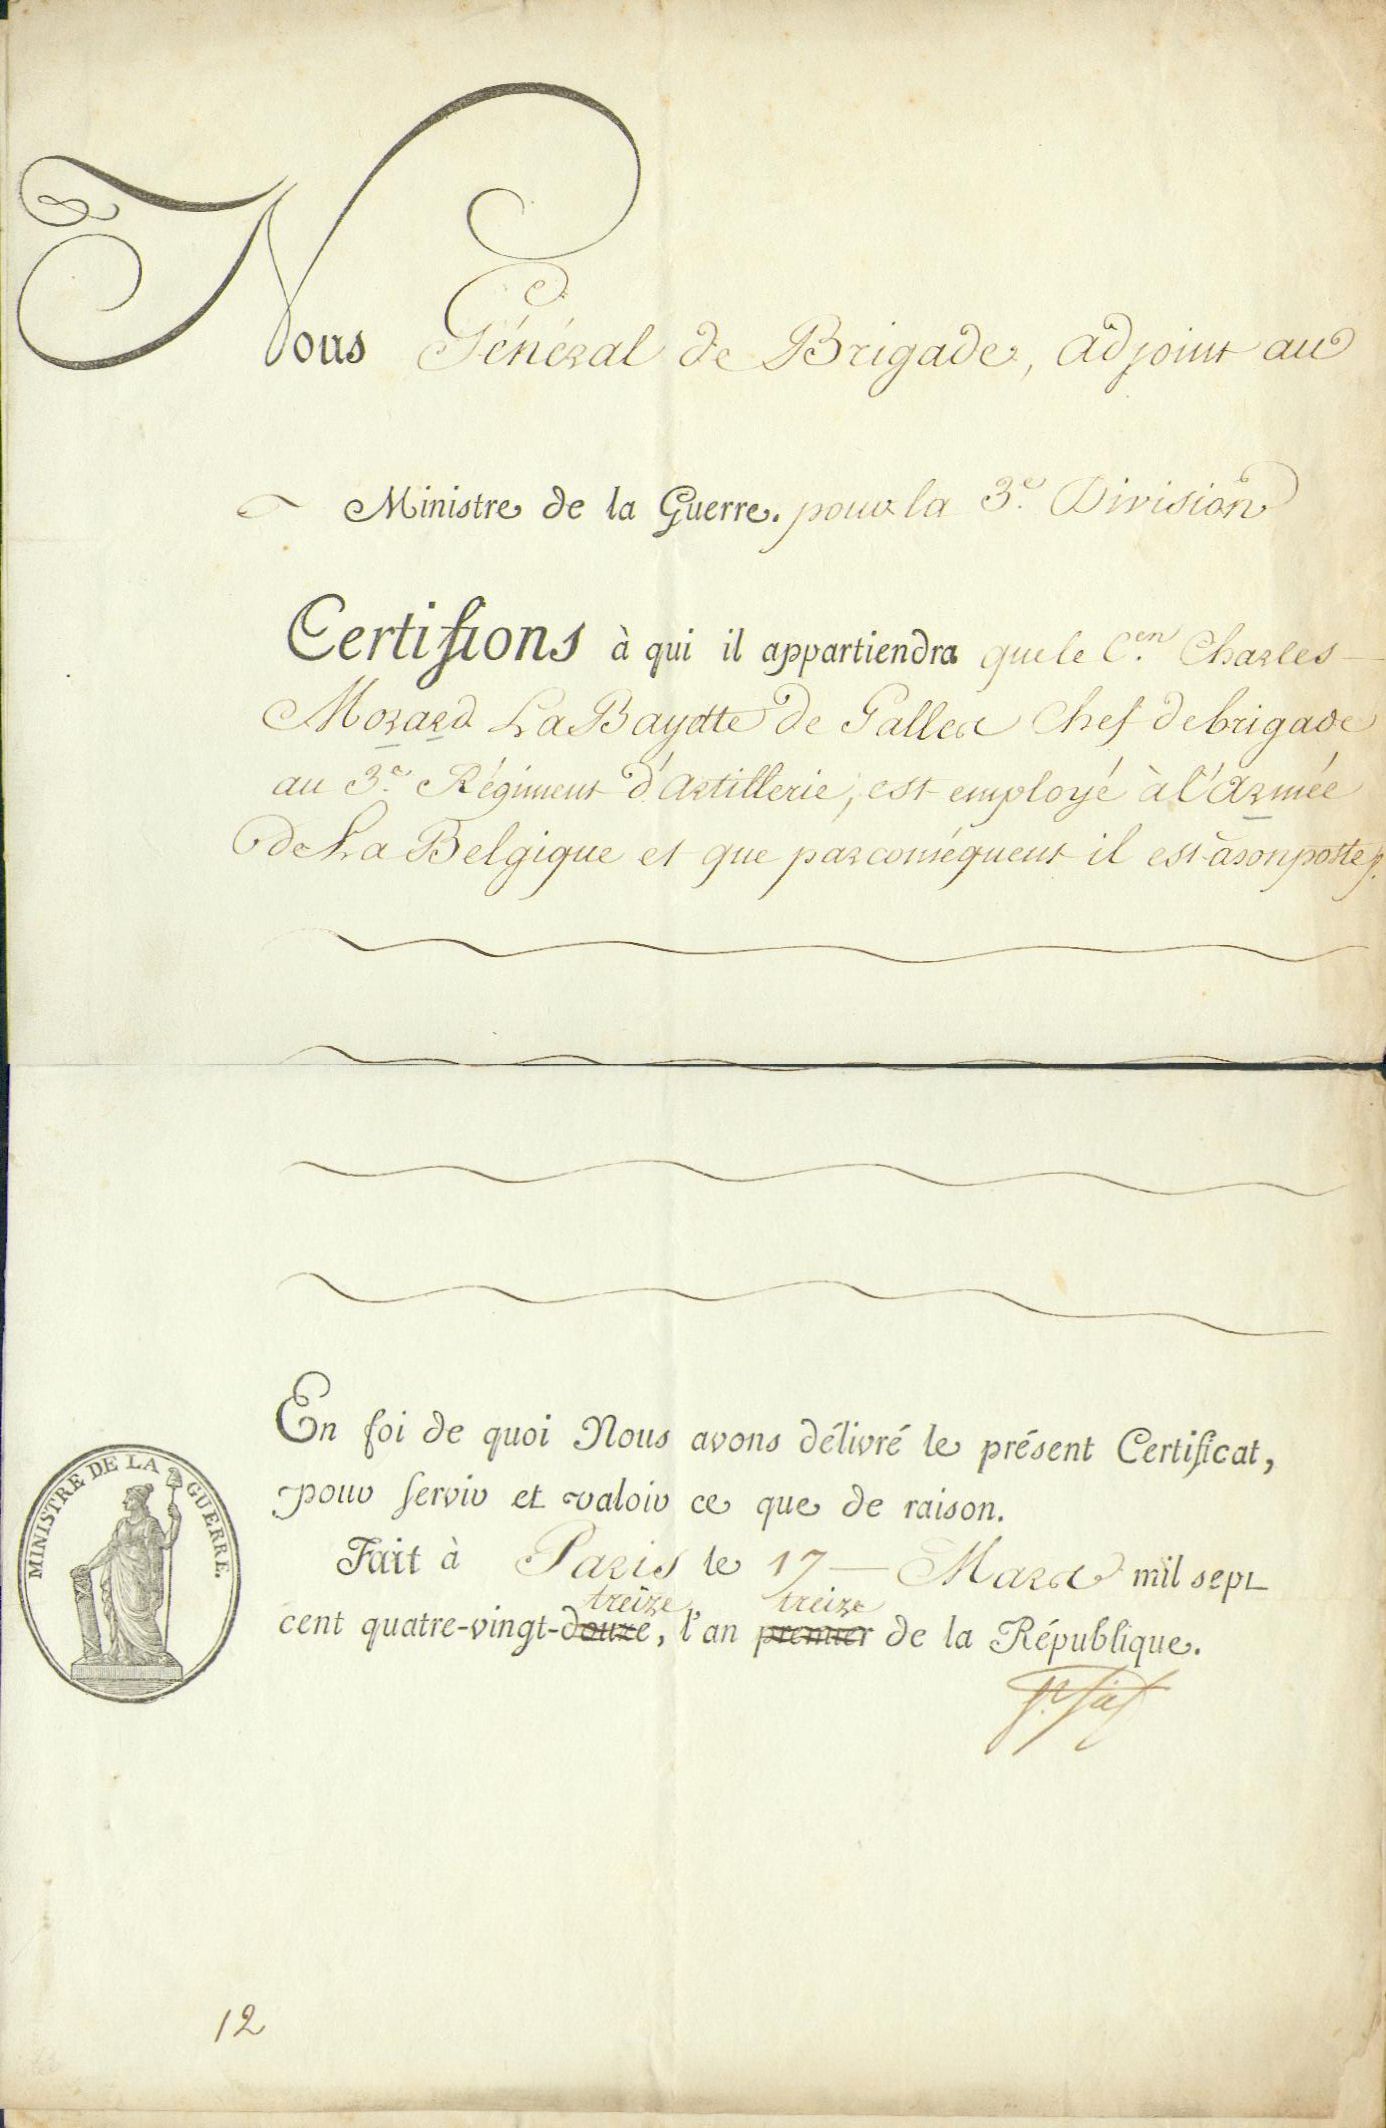 Nous Général de Brigade, adjoint au
Ministre de la Guerre. pour la 3.e Division
Certifions à qui il appartiendra que le C.en Charles
Morard La Bayette de Galles Chef de brigade
au 3.e Régiment d'Artillerie, est employé à l'Armée
de La Belgique et que par conséquent il est à son poste
En foi de quoi Nous avons délivré le présent Certificat,
pour servir et valoir ce que de raison.
Fait à Paris le 17 Mars mil sept
treize treize
cent quatre-vingt-douze, l'an premier de la République.
MINISTRE DE LA GUERRE.
12